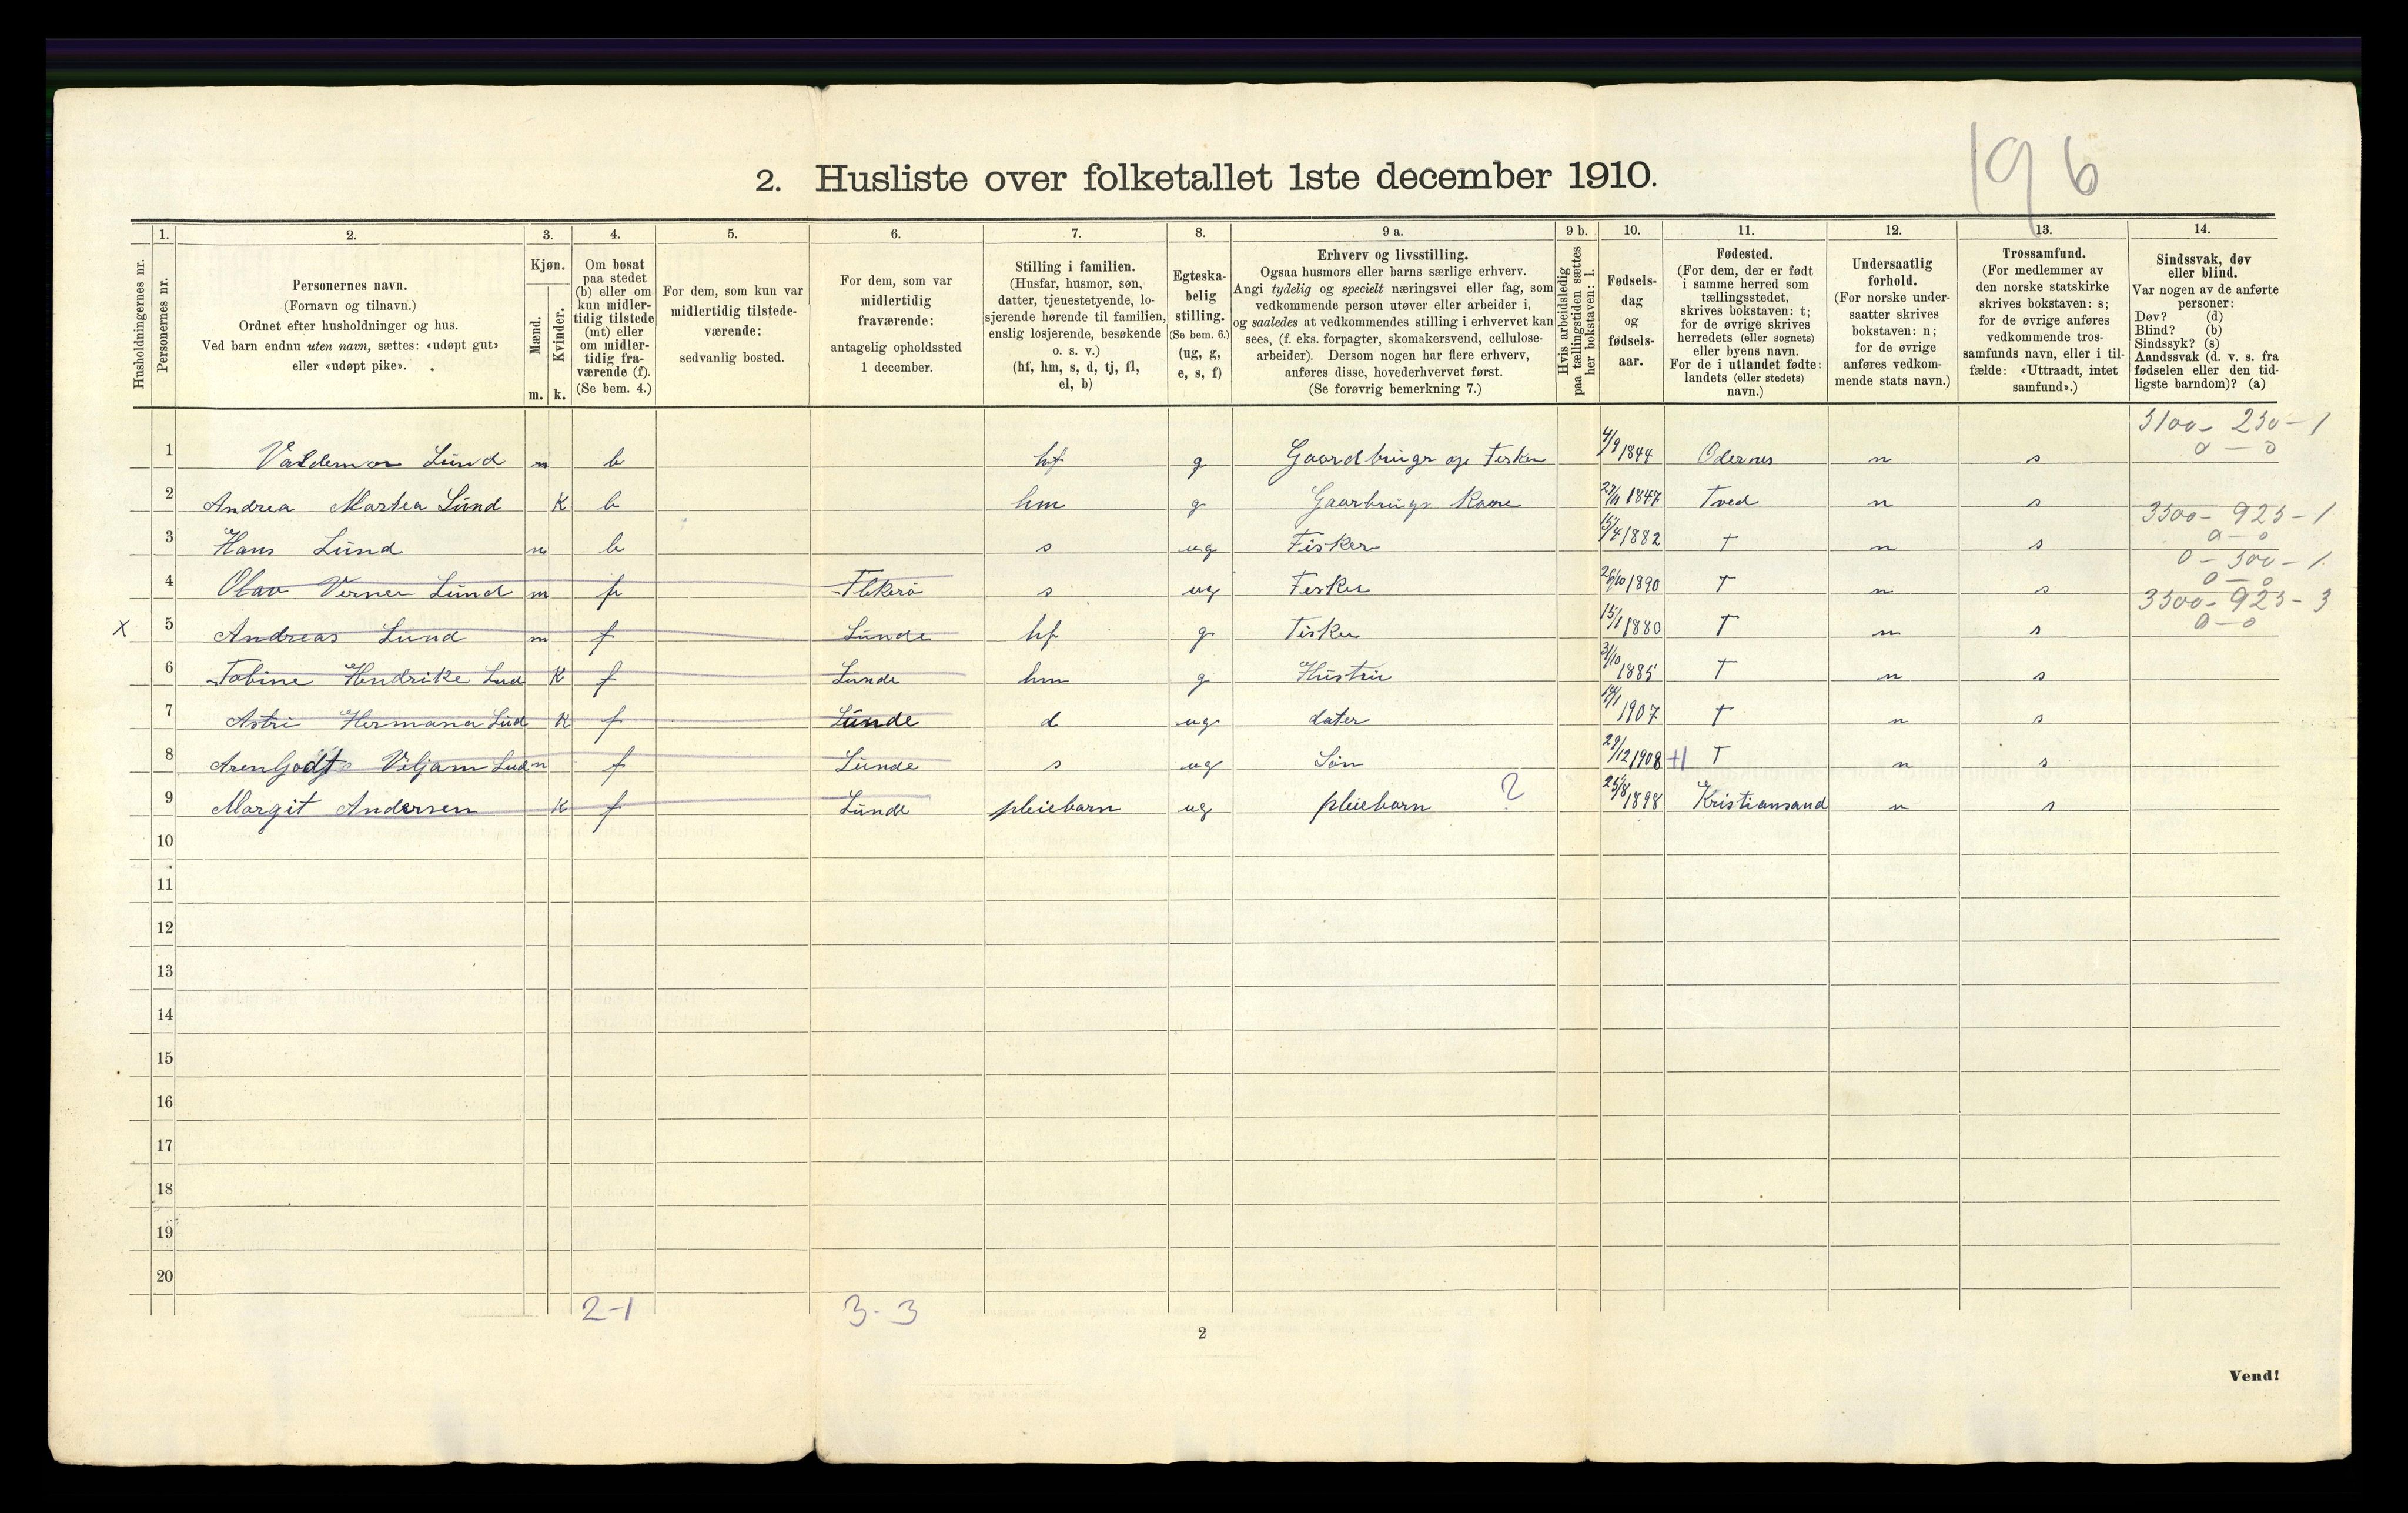 196
2. Husliste over folketallet 1ste december 1910.
Husholdningernes nr.
1. Personernes nr.
2. Personernes navn.
(Fornavn og tilnavn.)
Ordnet efter husholdninger og hus.
Ved barn endnu uten navn, sættes: «udøpt gut»
eller «udøpt pike».
3. Kjøn.
Mænd. Kvinder.
m. k.
4. Om bosat
paa stedet
(b) eller om
kun midler-
tidig tilstede
(mt) eller
om midler-
tidig fra-
værende (f).
(Se bem. 4.)
5. For dem, som kun var
midlertidig tilstede-
værende:
sedvanlig bosted.
6. For dem, som var
midlertidig
fraværende:
antagelig opholdssted
1 december.
7. Stilling i familien.
(Husfar, husmor, søn,
datter, tjenestetyende, lo-
sjerende hørende til familien,
enslig losjerende, besøkende
o. s. v.)
(hf, hm, s, d, tj, fl,
el, b)
8. Egteska-
belig
stilling.
(Se bem. 6.)
(ug, g,
e, s, f)
9 a. Erhverv og livsstilling.
Ogsaa husmors eller barns særlige erhverv.
Angi tydelig og specielt næringsvei eller fag, som
vedkommende person utøver eller arbeider i,
og saaledes at vedkommendes stilling i erhvervet kan
sees, (f. eks. forpagter, skomakersvend, cellulose-
arbeider). Dersom nogen har flere erhverv,
anføres disse, hovederhvervet først.
(Se forøvrig bemerkning 7.)
9 b. Hvis arbeidsledig
paa tællingstiden sættes
her bokstaven: l.
10. Fødsels-
dag
og
fødsels-
aar.
11. Fødested.
(For dem, der er født
i samme herred som
tællingsstedet,
skrives bokstaven: t;
for de øvrige skrives
herredets (eller sognets)
eller byens navn.
For de i utlandet fødte:
landets (eller stedets)
navn.)
12. Undersaatlig
forhold.
(For norske under-
saatter skrives
bokstaven: n;
for de øvrige
anføres vedkom-
mende stats navn.)
13. Trossamfund.
(For medlemmer av
den norske statskirke
skrives bokstaven: s;
for de øvrige anføres
vedkommende tros-
samfunds navn, eller i til-
fælde: «Uttraadt, intet
samfund».)
14. Sindssvak, døv
eller blind.
Var nogen av de anførte
personer:
Døv? (d)
Blind? (b)
Sindssyk? (s)
Aandssvak (d. v. s. fra
fødselen eller den tid-
ligste barndom)? (a)
1 Valdemar Lund m b hf g Gaardbrugr og Fisker 4/9 1844 Odernes n s 3100-230-1 0-0
2 Andrea Martea Lund K b hm g Gaarbrugs Kone 27/11 1847 Tved n s
3 Hans Lund m b s ug Fisker 15/4 1882 T n s 3300-925-1 0-0
4 Olav Verner Lund m f Flekerø s ug Fisker 26/10 1890 T n s 0-300-1 0-0
X 5 Andreas Lund m f Lunde hf g Fisker 15/1 1880 T n s 3300-925-3 0-0
6 Tobine Hendrike Lud K f Lunde hm g Hustru 31/10 1885 T n s
7 Astri Hermana Lud K f Lunde d ug dater 1907 T n s
8 Viljam Lud m f Lunde s ug Søn 29/12 1908 T n s
9 Margit Andersen K f Lunde pleiebarn ug pleiebarn ? 25/8 1898 Kristiansand n s
10
11
12
13
14
15
16
17
18
19
20
2-1 3-3
2
Vend!